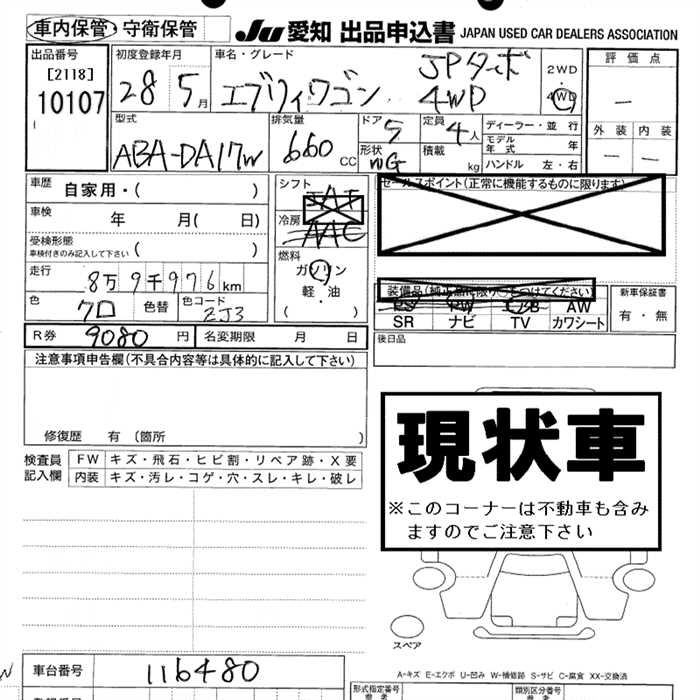 車内保管・守衛保管
JU 愛知 出品申込書 JAPAN USED CAR DEALERS ASSOCIATION
出品番号
[2118]
10107
初度登録年月
28 5月
車名・グレード
エブリィワゴン
JPターボ
4WD
2WD
4WD
評価点
—
外装 内装
— —
型式
ABA-DA17W
排気量
660 CC
ドア 5
形状 WG
定員 4人
積載 kg
ディーラー・並行
モデル年式 年
ハンドル 左・右
車歴 自家用・( )
車検 年 月( 日)
受検形態
車検付きのみ記入して下さい ( )
走行 8万9千976km
色 クロ 色替 色コード 2J3
シフト
冷房 AAC
燃料
ガソリン
軽・油
( )
セールスポイント(正常に機能するものに限ります)
装備品(純正品に限り○をつけてください)
PS PW AW
SR ナビ TV カワシート
新車保証書
有・無
R券 9080円 名変期限 月 日
後日品
注意事項申告欄(不具合内容等は具体的に記入して下さい)
修復歴 有 (箇所 )
検査員記入欄
FW キズ・飛石・ヒビ割・リペア跡・X要
内装 キズ・汚レ・コゲ・穴・スレ・キレ・破レ
現状車
※このコーナーは不動車も含みますのでご注意下さい
スペア
A-キズ E-エクボ U-凹み W-補修跡 S-サビ C-腐食 XX-交換済
車台番号 116480
形式指定番号
類別区分番号